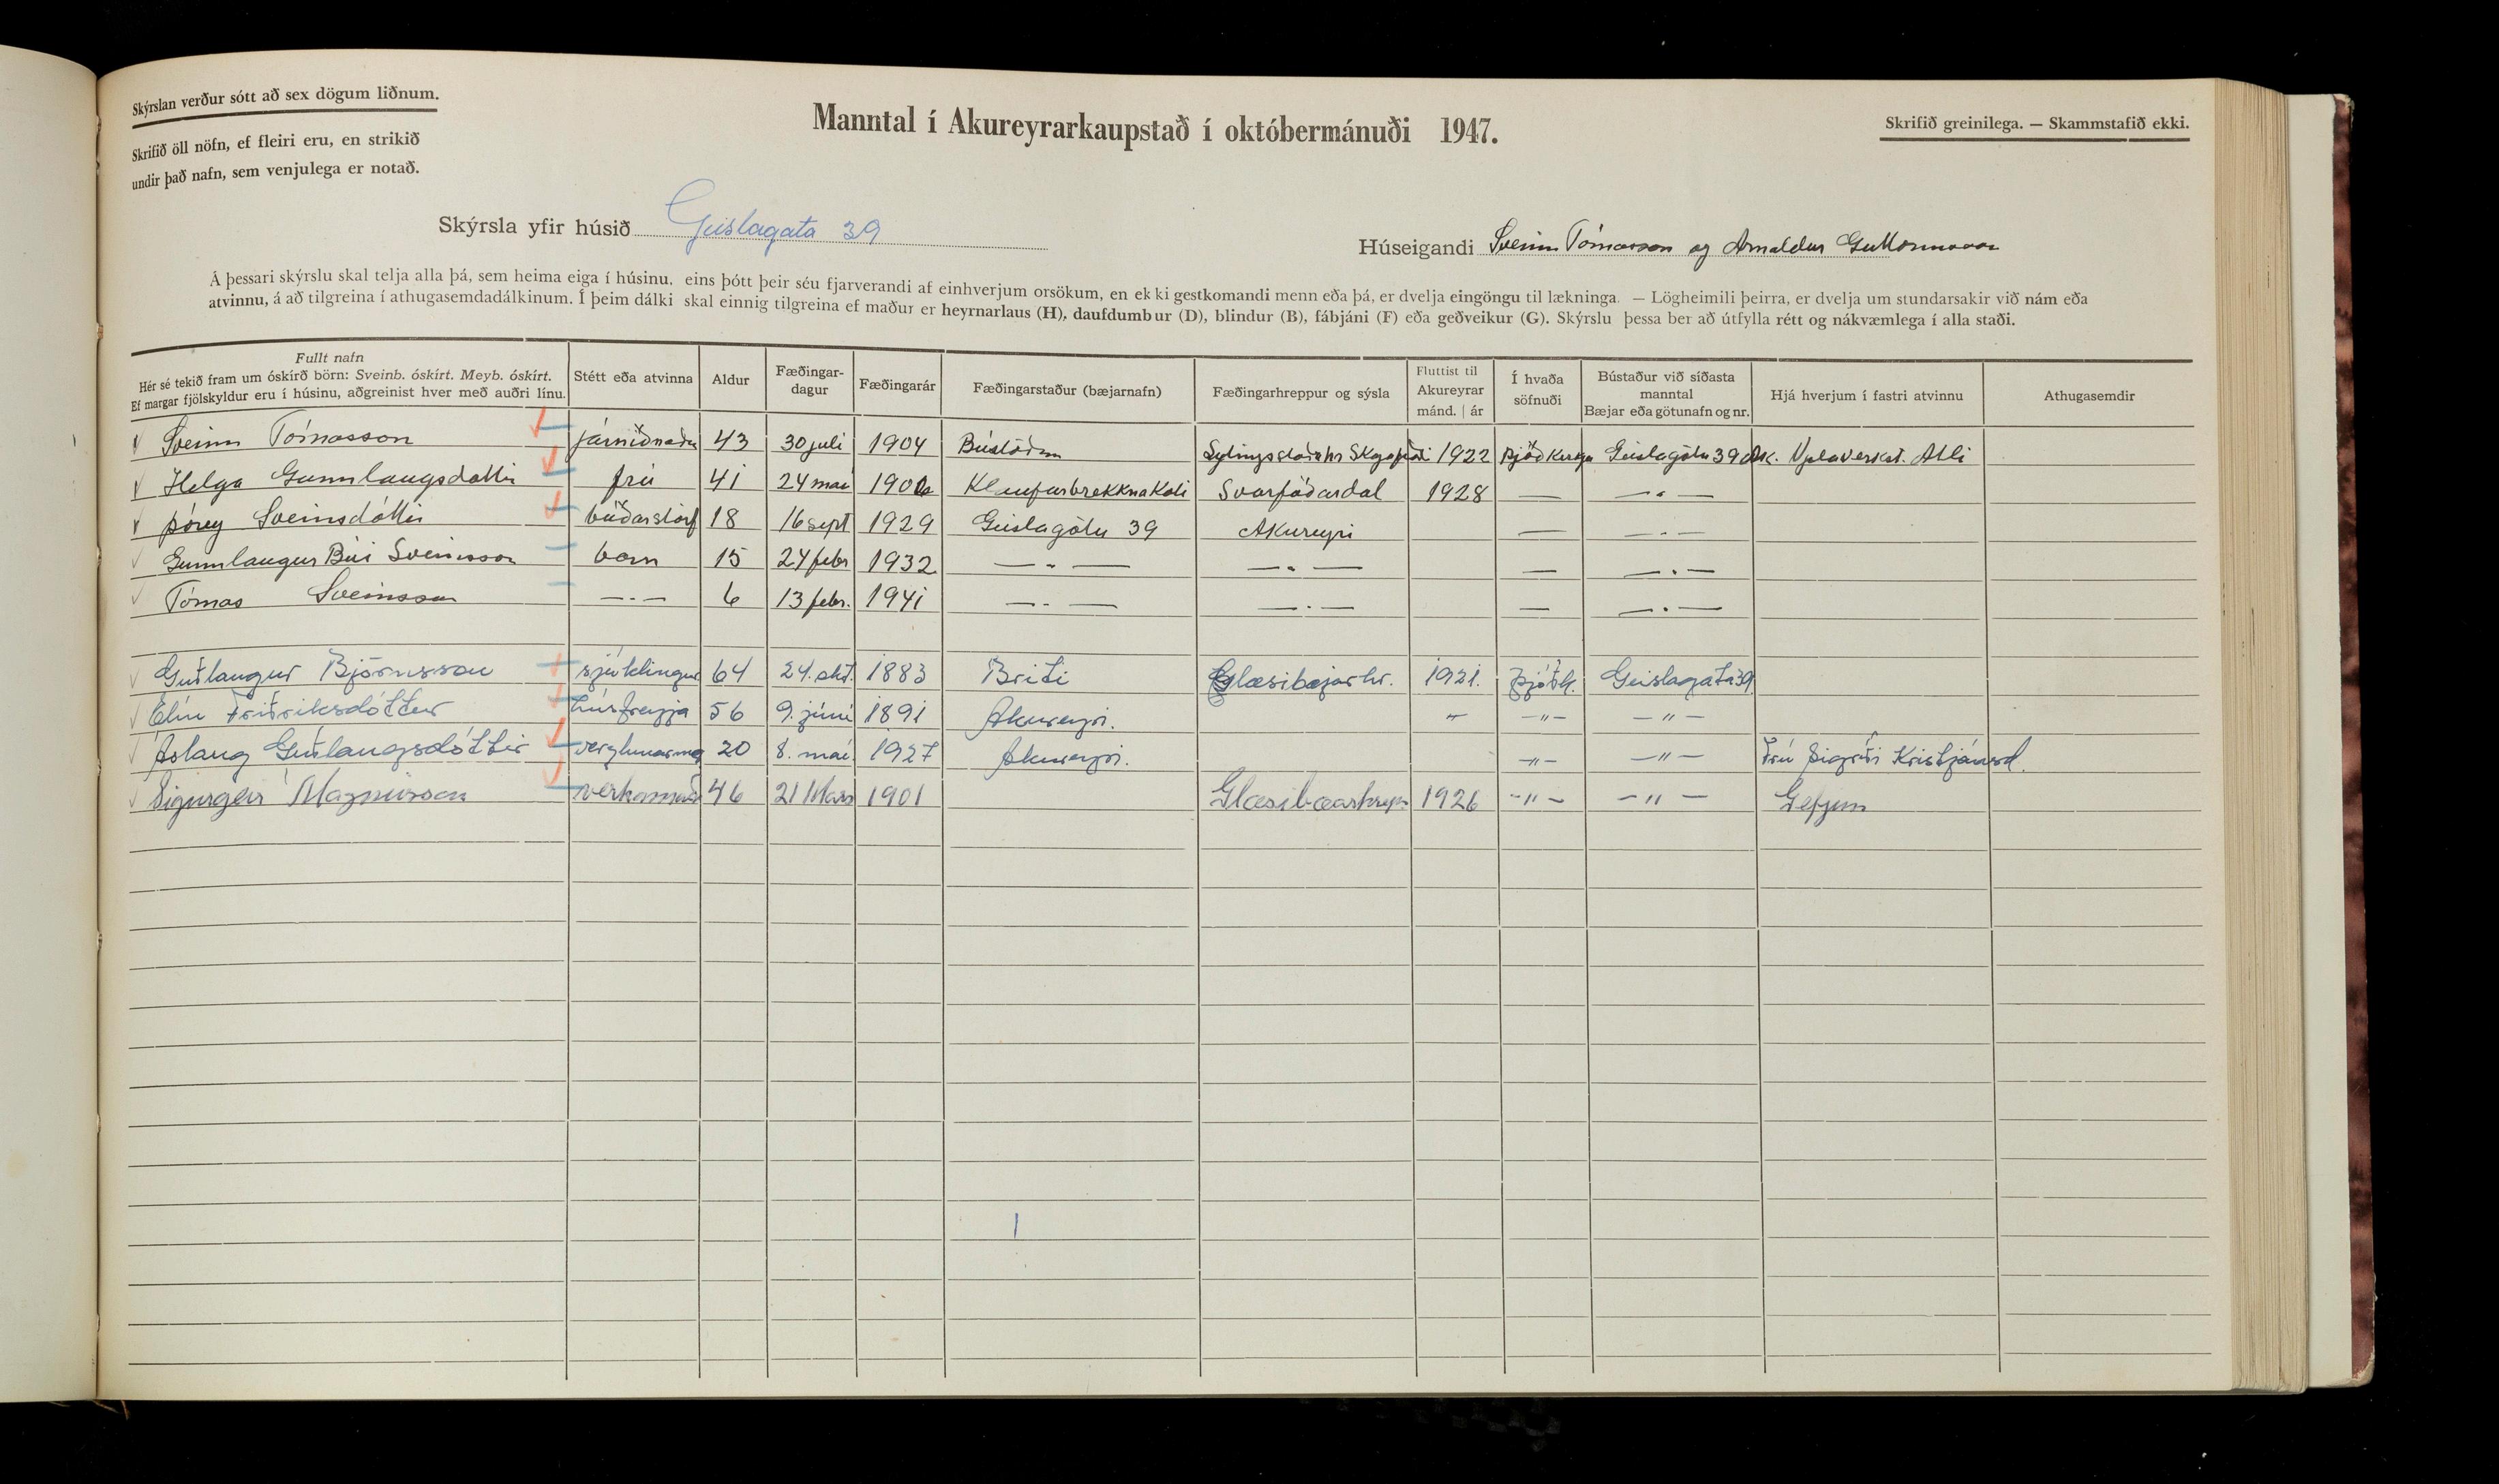 Skýrslan verður sótt að sex dögum liðnum.
Skrifið öll nöfn, ef fleiri eru, en strikið
undir það nafn, sem venjulega er notað.
Manntal í Akureyrarkaupstað í októbermánuði 1947.
Skrifið greinilega. — Skammstafið ekki.
Skýrsla yfir húsið Geislagata 39
Húseigandi Sveinn Tómasson og Arnaldur Guttormsson
Á þessari skýrslu skal telja alla þá, sem heima eiga í húsinu, eins þótt þeir séu fjarverandi af einhverjum orsökum, en ekki gestkomandi menn eða þá, er dvelja eingöngu til lækninga. — Lögheimili þeirra, er dvelja um stundarsakir við nám eða
atvinnu, á að tilgreina í athugasemdadálkinum. Í þeim dálki skal einnig tilgreina ef maður er heyrnarlaus (H), daufdumbur (D), blindur (B), fábjáni (F) eða geðveikur (G). Skýrslu þessa ber að útfylla rétt og nákvæmlega í alla staði.
Fullt nafn
Hér sé tekið fram um óskírð börn: Sveinb. óskírt. Meyb. óskírt.
Ef margar fjölskyldur eru í húsinu, aðgreinist hver með auðri línu.
Stétt eða atvinna
Aldur
Fæðingar-
dagur
Fæðingarár
Fæðingarstaður (bæjarnafn)
Fæðingarhreppur og sýsla
Fluttist til
Akureyrar
mánd. | ár
Í hvaða
söfnuði
Bústaður við síðasta
manntal
Bæjar eða götunafn og nr.
Hjá hverjum í fastri atvinnu
Athugasemdir
Sveinn Tómasson 43 30 juli 1904 Bústöðum 1922 Þjóðkirkju Geislagötu 39 Ak. Vjelaverkst. Atli
Helga Gunnlaugsdóttir frú 41 24 mai 1906 Klaufarbrekknakoti Svarfaðardal 1928 — —"—
Þórey Sveinsdóttir búðarstörf 18 16 sept 1929 Geislagötu 39 Akureyri — —"—
Gunnlaugur Búi Sveinsson barn 15 24 febr 1932 —"— —"— — —"—
Tómas Sveinsson —"— 6 13 febr. 1941 —"— —"— — —"—
Guðlaugur Björnsson sjúklingur 64 24. okt. 1883 Briti Glæsibæjarhr. 1921. Þjóðk. Geislagata 39
Elín Friðriksdóttir húsfreyja 56 9. júní 1891 Akureyri. " —"— —"—
Áslaug Guðlaugsdóttir 20 8. mai 1927 Akureyri. —"— —"— Frú Sigríði Kristjánsd.
Sigurgeir Magnússon verkamað 46 21 Mars 1901 1926 —"— —"— Gefjun